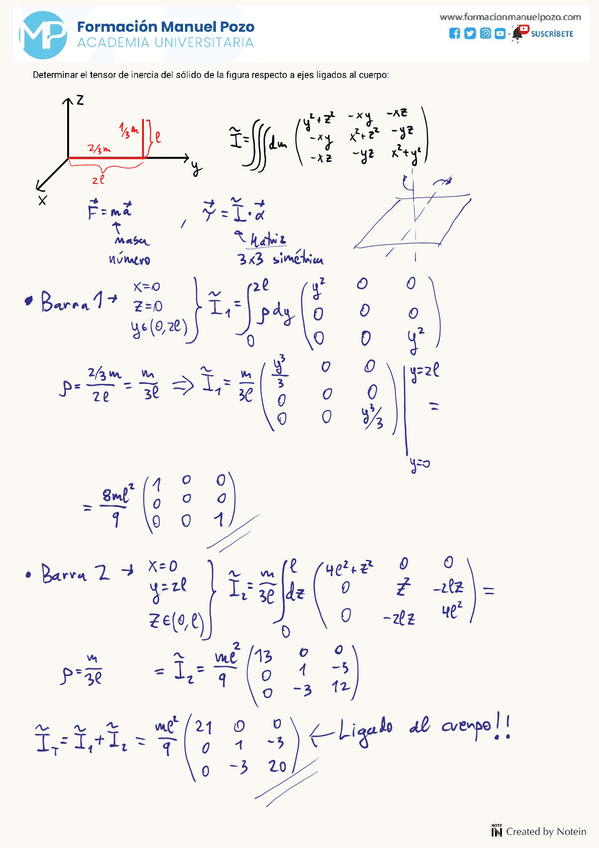 www.formacionmanuelpozo.com
MP Formación Manuel Pozo
ACADEMIA UNIVERSITARIA
SUSCRÍBETE
Determinar el tensor de inercia del sólido de la figura respecto a ejes ligados al cuerpo:
Z
1/3 m
ℓ
2/3 m
y
2ℓ
x
Ĩ = ∭ dm ( y²+z² -xy -xz
-xy x²+z² -yz
-xz -yz x²+y² )
F⃗ = ma⃗ , τ⃗ = Ĩ·α⃗
Masa Matriz
número 3x3 simétrica
• Barra 1 → x=0
z=0
y∈(0,2ℓ)
Ĩ₁ = ∫₀^2ℓ ρdy ( y² 0 0
0 0 0
0 0 y² )
ρ = 2/3 m / 2ℓ = m/3ℓ ⇒ Ĩ₁ = m/3ℓ ( y³/3 0 0
0 0 0
0 0 y³/3 ) | y=2ℓ
=
y=0
= 8mℓ²/9 ( 1 0 0
0 0 0
0 0 1 )
• Barra 2 → x=0
y=2ℓ
z∈(0,ℓ)
Ĩ₂ = m/3ℓ ∫₀^ℓ dz ( 4ℓ²+z² 0 0
0 z² -2ℓz
0 -2ℓz 4ℓ² ) =
ρ = m/3ℓ = Ĩ₂ = mℓ²/9 ( 13 0 0
0 1 -3
0 -3 12 )
Ĩ_T = Ĩ₁ + Ĩ₂ = mℓ²/9 ( 21 0 0
0 1 -3
0 -3 20 ) ← Ligado al cuerpo!!
NOTE IN Created by Notein